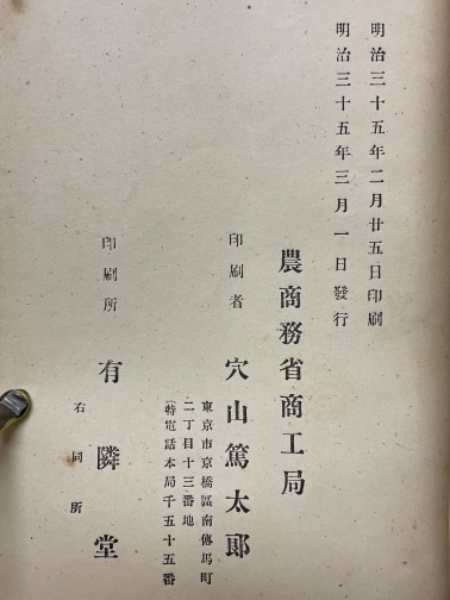 明治三十五年二月廿五日印刷
明治三十五年三月一日發行
農商務省商工局
印刷者 穴山篤太郎
東京市京橋區南傳馬町
二丁目十三番地
(特電話本局千五十五番
印刷所 有隣堂
右同所